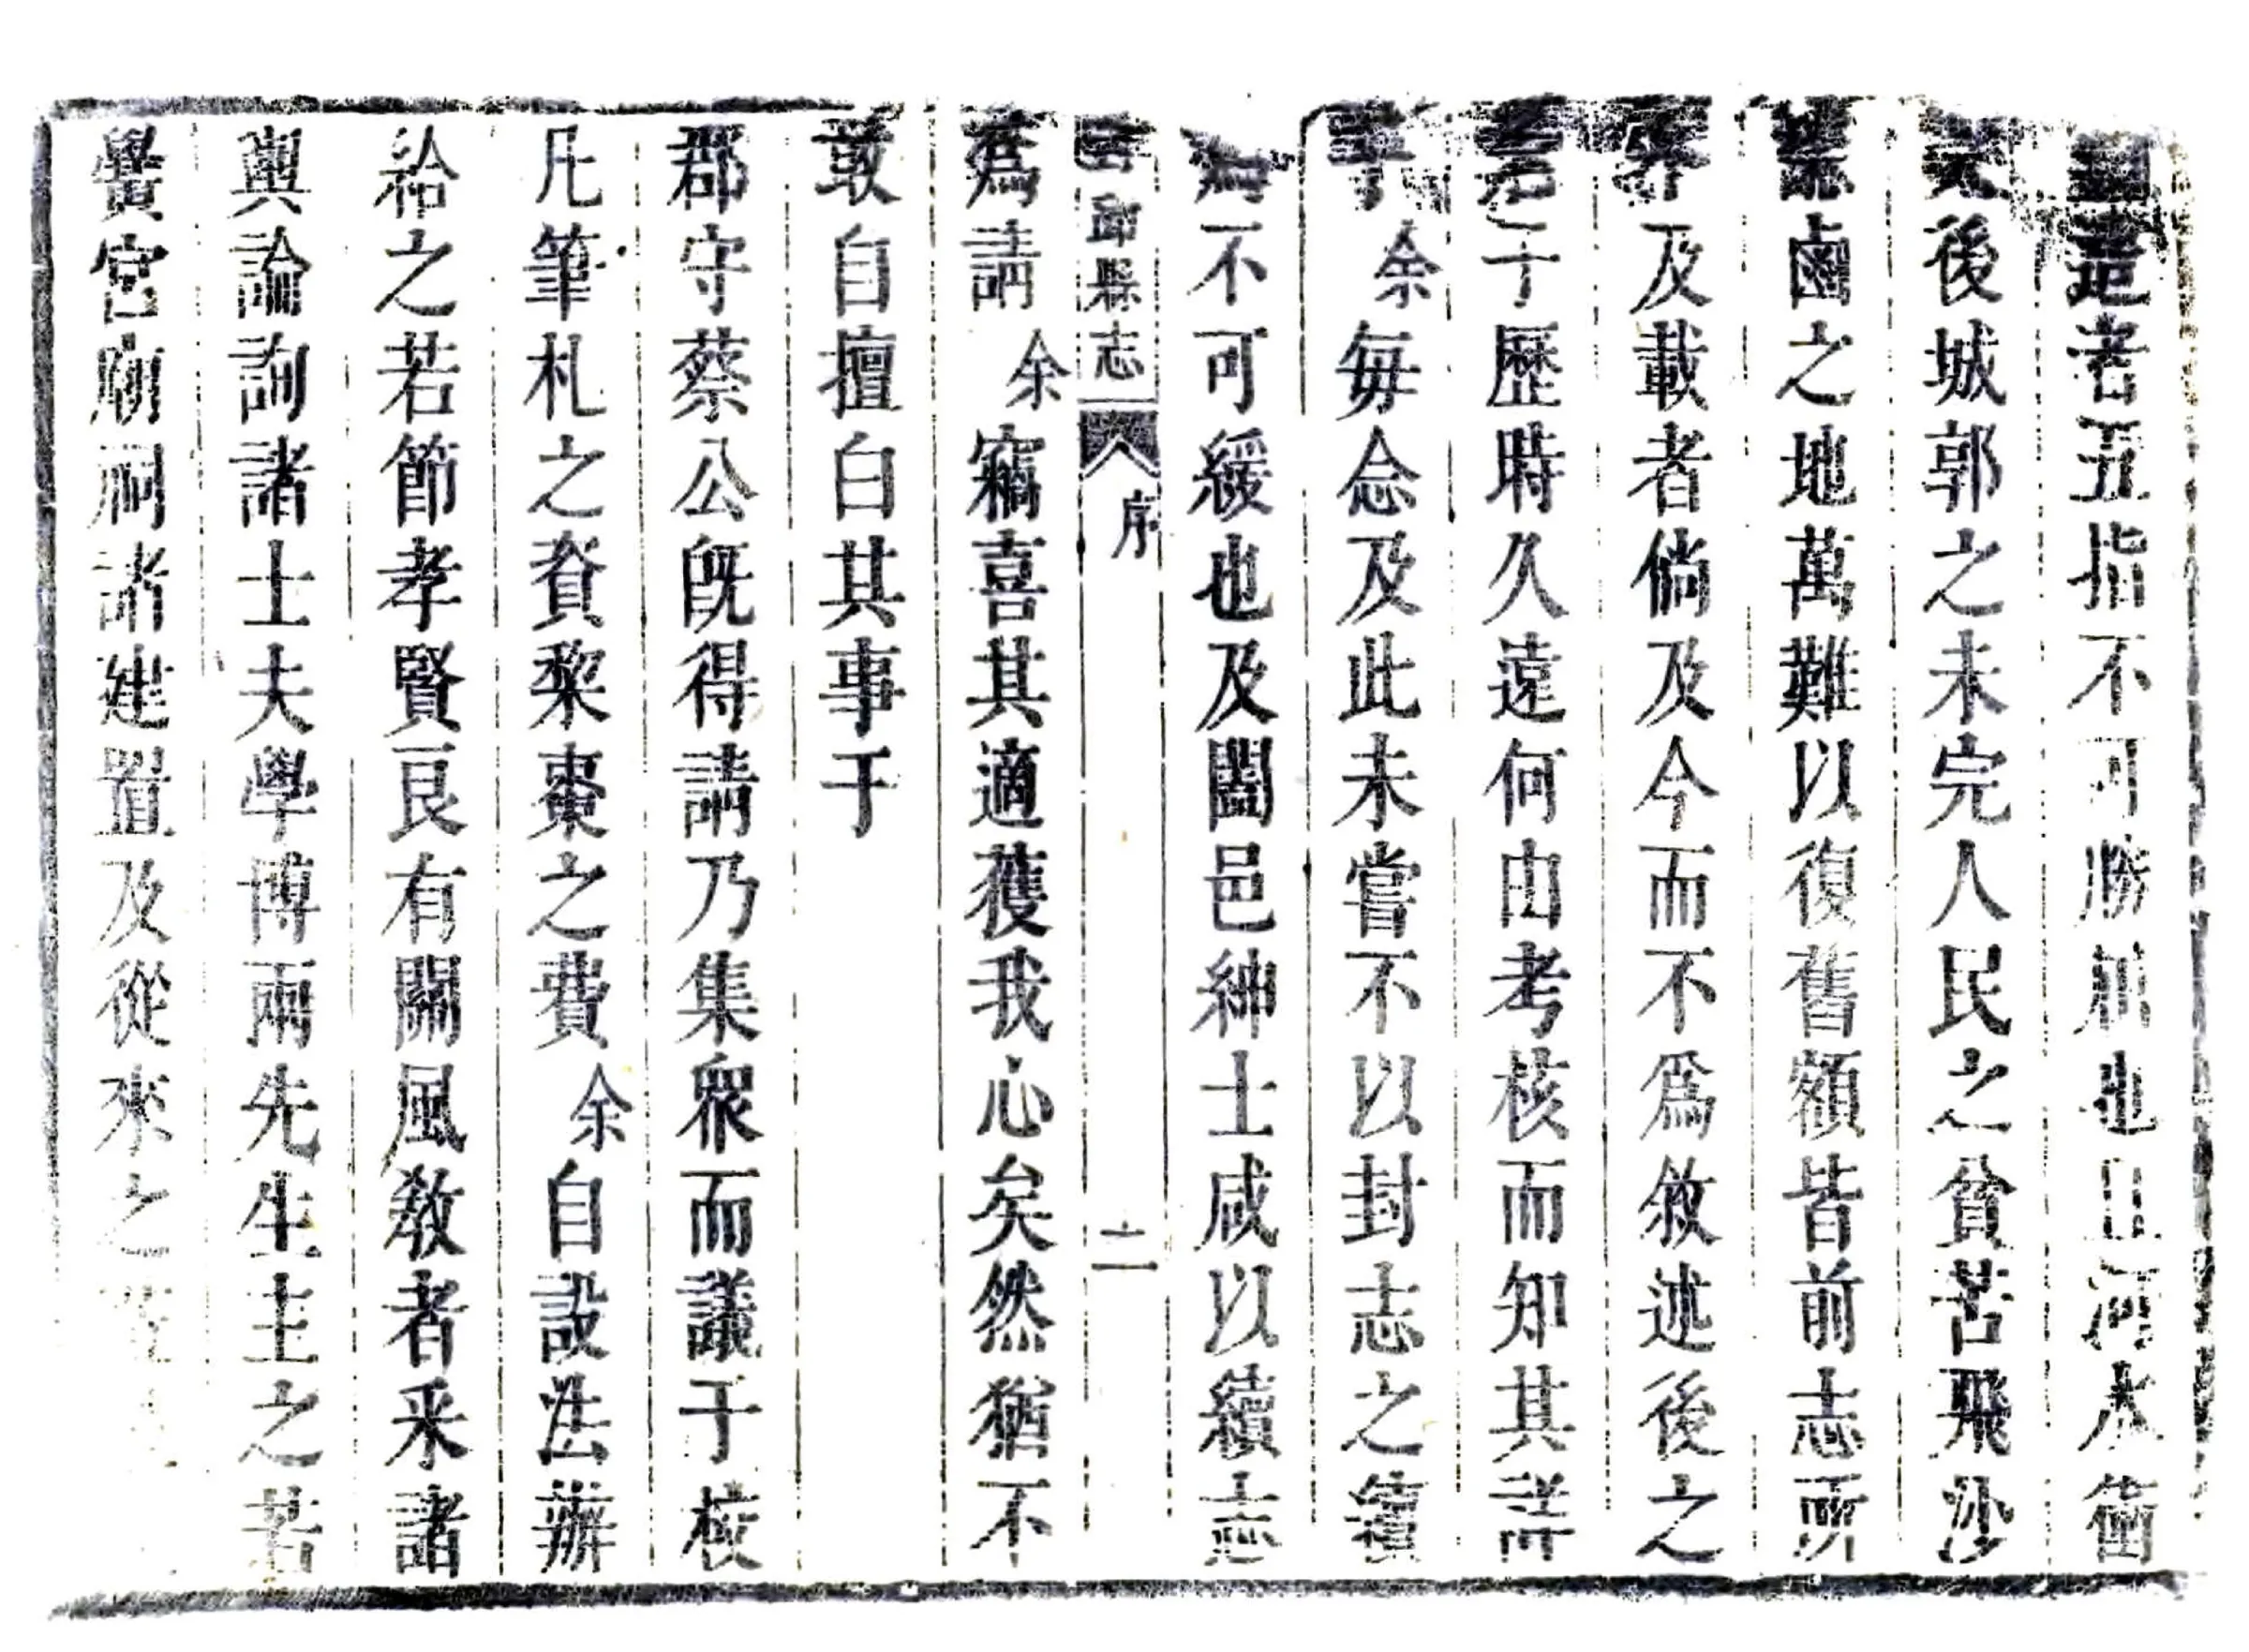 造者五指不可勝屈也且河水衝
後城郭之未完人民之貧苦飛沙
鹵之地萬難以復舊額皆前志所
及載者倘及今而不為敘述後之
君子歷時久遠何由考核而知其詳
乎余每念及此未嘗不以封志之續
為不可緩也及闔邑紳士咸以續志
封邱縣志
序
二
為請余竊喜其適獲我心矣然猶不
敢自擅白其事于
郡守蔡公既得請乃集眾而議于校
凡筆札之資棃棗之費余自設法辦
給之若節孝賢良有關風教者采諸
輿論詢諸士夫學博兩先生主之若
黌宮廟祠諸建置及從來之